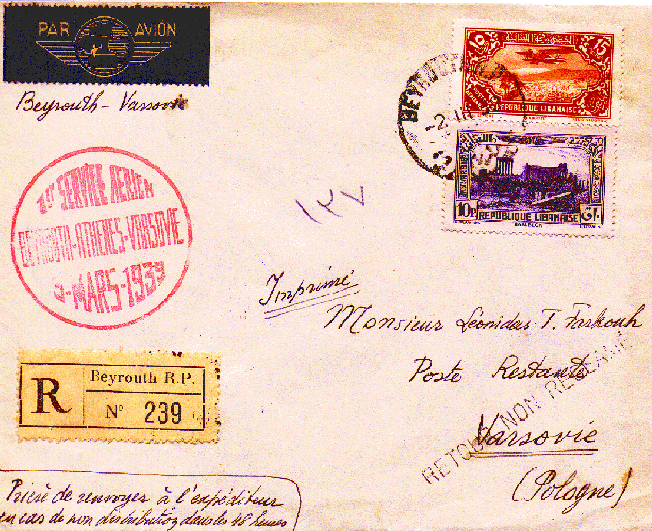 PAR AVION
Beyrouth - Varsovie
15
REPUBLIQUE LIBANAISE
BEYROUTH
-2
10P
REPUBLIQUE LIBANAISE
BAALBECK
1er SERVICE AERIEN
BEYROUTH-ATHENES-VARSOVIE
3-MARS-1939
١٢٧
Imprimé
Monsieur Léonidas T. Farkouh
Poste Restante
Varsovie
(Pologne)
RETOUR NON RECLAMÉ
R
Beyrouth R.P.
N° 239
Prière de renvoyer à l'expéditeur
en cas de non distribution dans les 48 heures